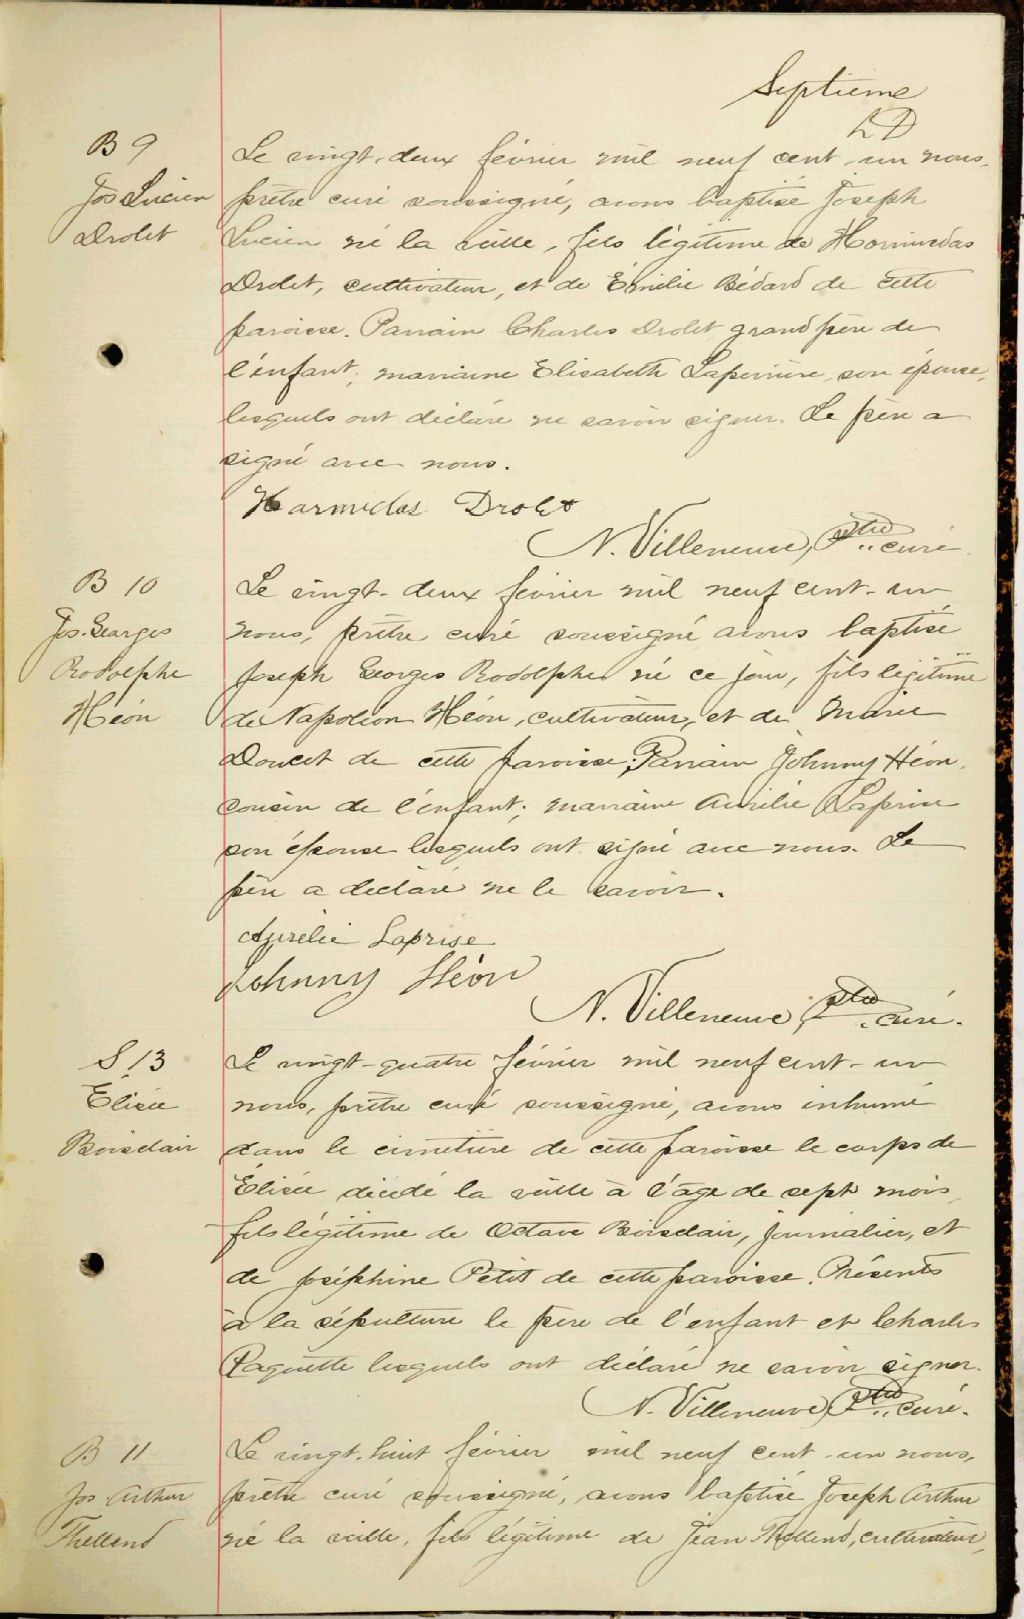 Septième
LD
B 9
Jos Lucien
Drolet
Le vingt-deux février mil neuf cent-un nous,
prêtre curé soussigné, avons baptisé Joseph
Lucien né la veille, fils légitime de Hormisdas
Drolet, cultivateur, et de Émilie Bédard de cette
paroisse. Parrain Charles Drolet grand père de
l'enfant; marraine Elisabeth Laperrière son épouse,
lesquels ont déclaré ne savoir signer. Le père a
signé avec nous.
Harmidas Drolet
N. Villeneuve, Ptre curé
B 10
Jos. Georges
Rodolphe
Héon
Le vingt-deux février mil neuf cent-un
nous, prêtre curé soussigné avons baptisé
Joseph Georges Rodolphe né ce jour, fils légitime
de Napoléon Héon, cultivateur, et de Marie
Doucet de cette paroisse; Parrain Johnny Héon
cousin de l'enfant; marraine Aurélie Laprise
son épouse lesquels ont signé avec nous. Le
père a déclaré ne le savoir.
Aurélie Laprise
Johnny Héon
N. Villeneuve, Ptre curé.
S 13
Élisée
Boisclair
Le vingt-quatre février mil neuf cent-un
nous, prêtre curé soussigné, avons inhumé
dans le cimetière de cette paroisse le corps de
Élisée décédé la veille à l'âge de sept mois,
fils légitime de Octave Boisclair, journalier, et
de Joséphine Petit de cette paroisse. Présents
à la sépulture le père de l'enfant et Charles
Paquette lesquels ont déclaré ne savoir signer.
N. Villeneuve, Ptre curé.
B 11
Jos Arthur
Thellend
Le vingt-huit février mil neuf cent-un nous,
prêtre curé soussigné, avons baptisé Joseph Arthur
né la veille, fils légitime de Jean Thellend, cultivateur,